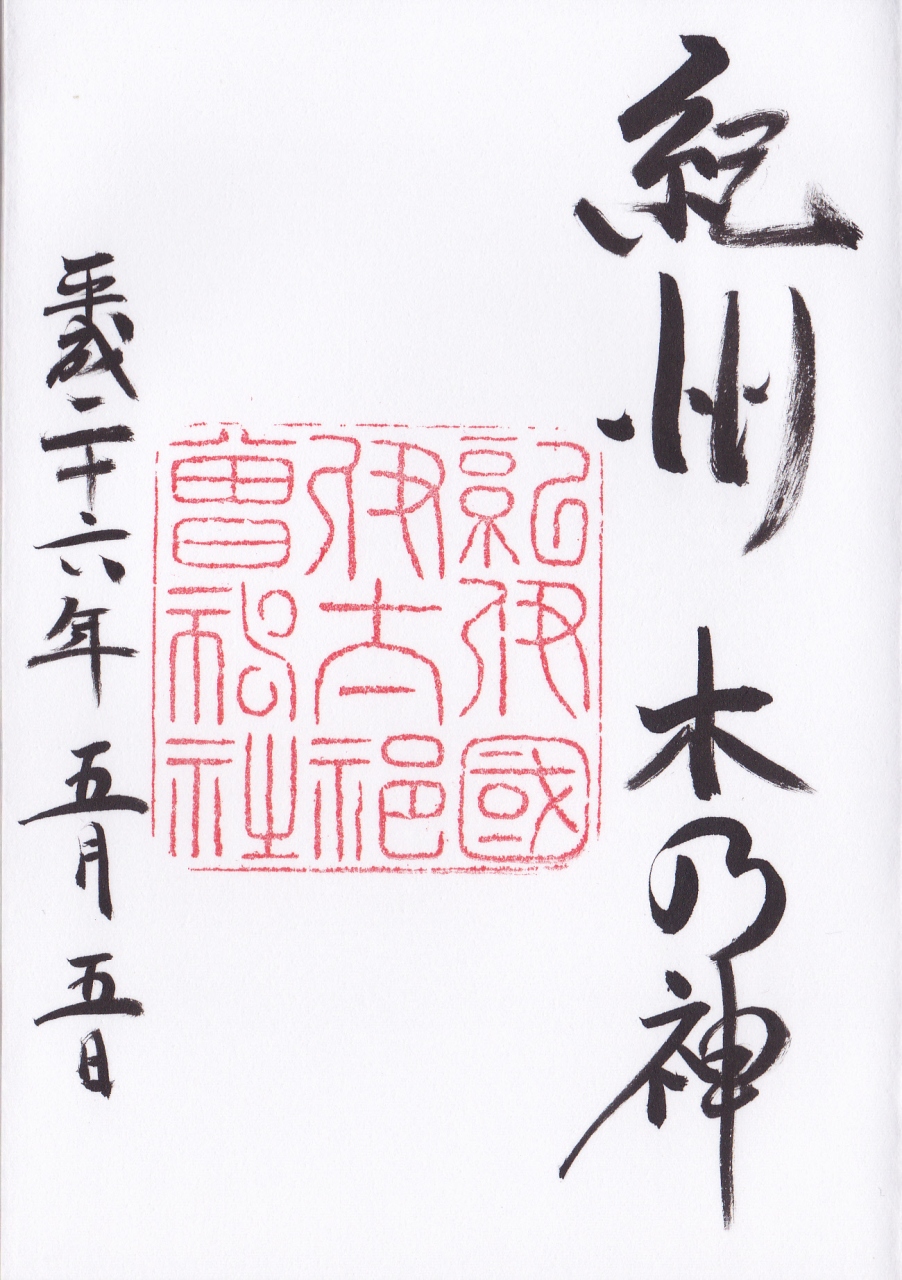 紀州 木乃神
紀伊國
伊太祁
曽神社
平成二十六年 五月 五日